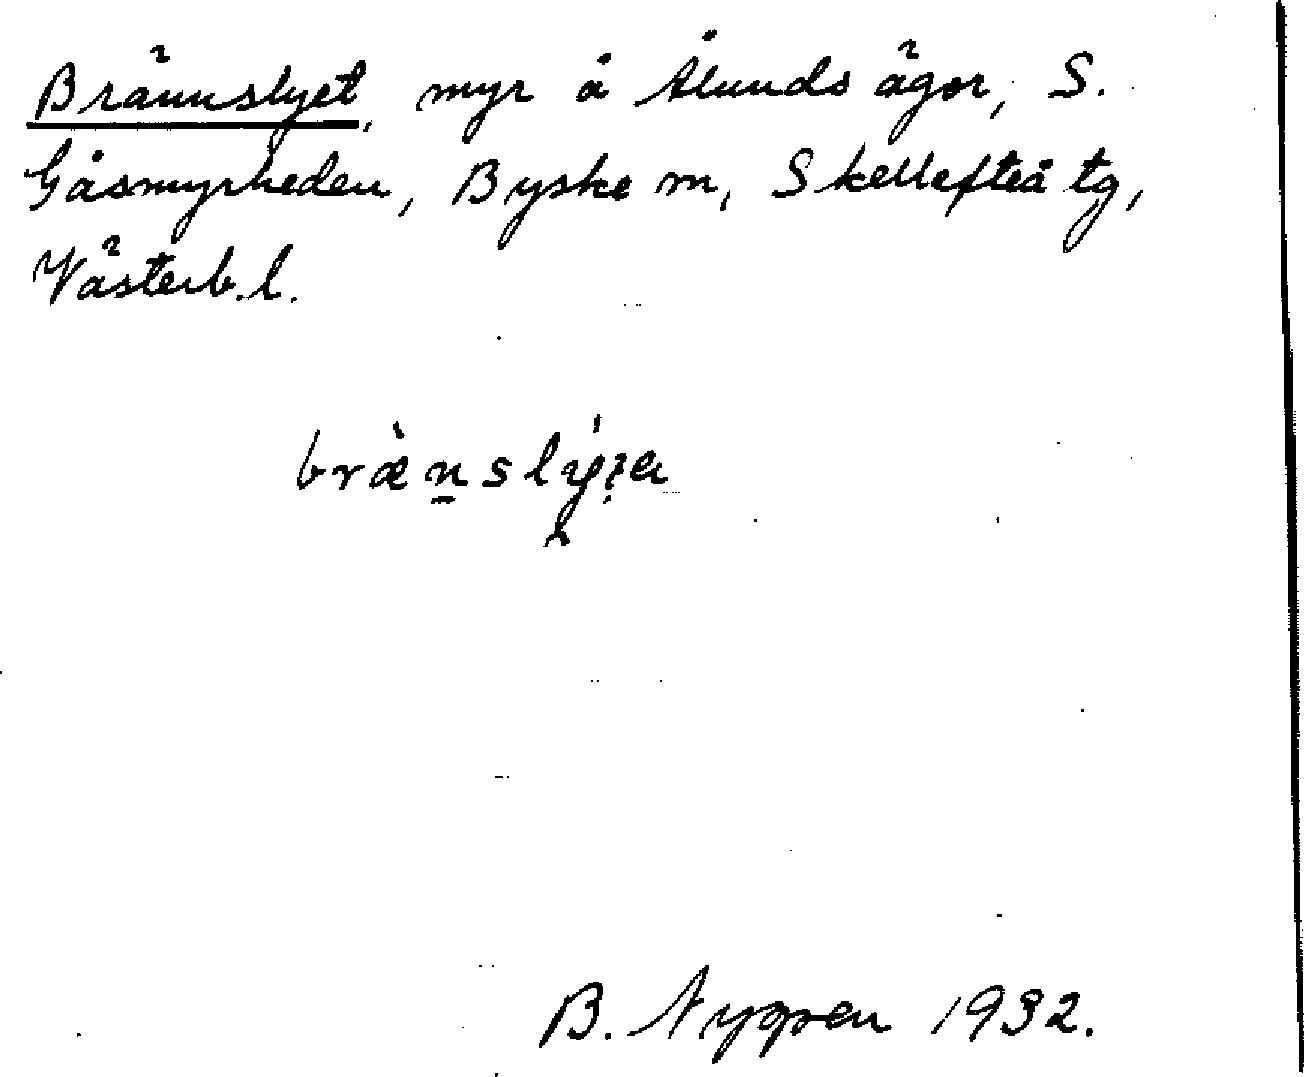 Brännslyet, myr å Ålunds ägor, S.
Gåsmyrheden, Byske sn, Skellefteå tg,
Västerb. l.
B. Nygren 1932.